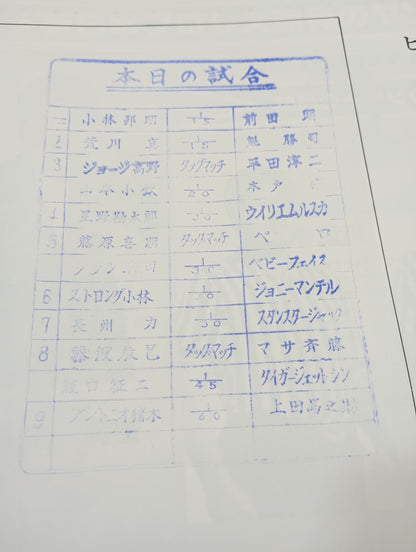 本日の試合
小林邦明 1/15 前田 明
2 荒川 真 1/15 魁 勝司
3 ジョージ高野 タッグマッチ 平田淳二
山本小鉄 1/20 木戸
4 星野勘太郎 1/30 ウイリエムルスカ
5 藤原喜明 タッグマッチ ペ ロ
1/30 ベビーフェイス
6 ストロング小林 1/30 ジョニーマンテル
7 長州 力 1/30 スタンスタージャック
8 藤波辰巳 タッグマッチ マサ斉藤
坂口征二 1/45 タイガージェットシン
9 アントニオ猪木 1/60 上田馬之助